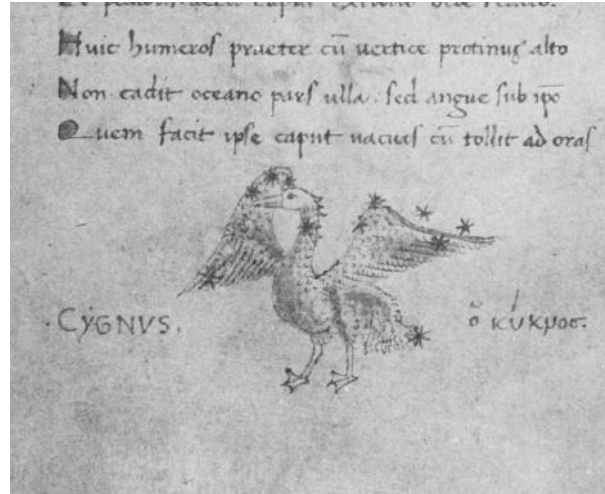 caput
Huic humeros praeter cū uertice protinus alto
Non cadit oceano pars ulla. sed angue sub ipō
Quem facit ipse caput uacuas cū tollit ad oras
·CẏGNVS.
ὁ κύκνος.